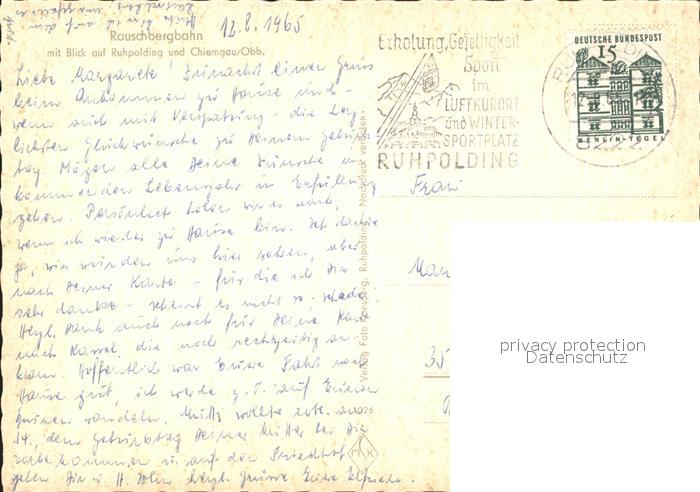 12.8.1965
Rauschbergbahn
mit Blick auf Ruhpolding und Chiemgau/Obb.
Liebe Margarete! Zunächst einen Gruss
beim Ankommen zu Hause und -
wenn auch mit Verspätung - die herz-
lichsten Glückwünsche zu Deinem Geburts-
tag. Mögen alle Deine Wünsche im
kommenden Lebensjahr in Erfüllung
gehen. Persönlich holen wir es nach,
wenn ich wieder zu Hause bin. Ich dachte
ja, wir würden uns hier sehen, aber
nach Deiner Karte - für die ich Dir
sehr danke - scheint es nicht so, schade.
Herzl. Dank auch noch für Deine Karte
nach Kassel, die noch rechtzeitig an-
kam. Hoffentlich war Eure Fahrt nach
Hause gut, ich werde z. T. auf Euren
Spuren wandeln. Mutti wollte evtl. am
14., dem Geburtstag Deiner Mutter bei Dir
vorbeikommen u. auf den Friedhof
gehen. Dir u. H. herzl. Grüsse Eure Elfriede.
Erholung, Geselligkeit
Sport
im
LUFTKURORT
und WINTER-
SPORTPLATZ
RUHPOLDING
DEUTSCHE BUNDESPOST
15
BERLIN-TEGEL
Frau
35
Verlag Foto Ruhpolding Nachdruck verboten
MK
privacy protection
Datenschutz